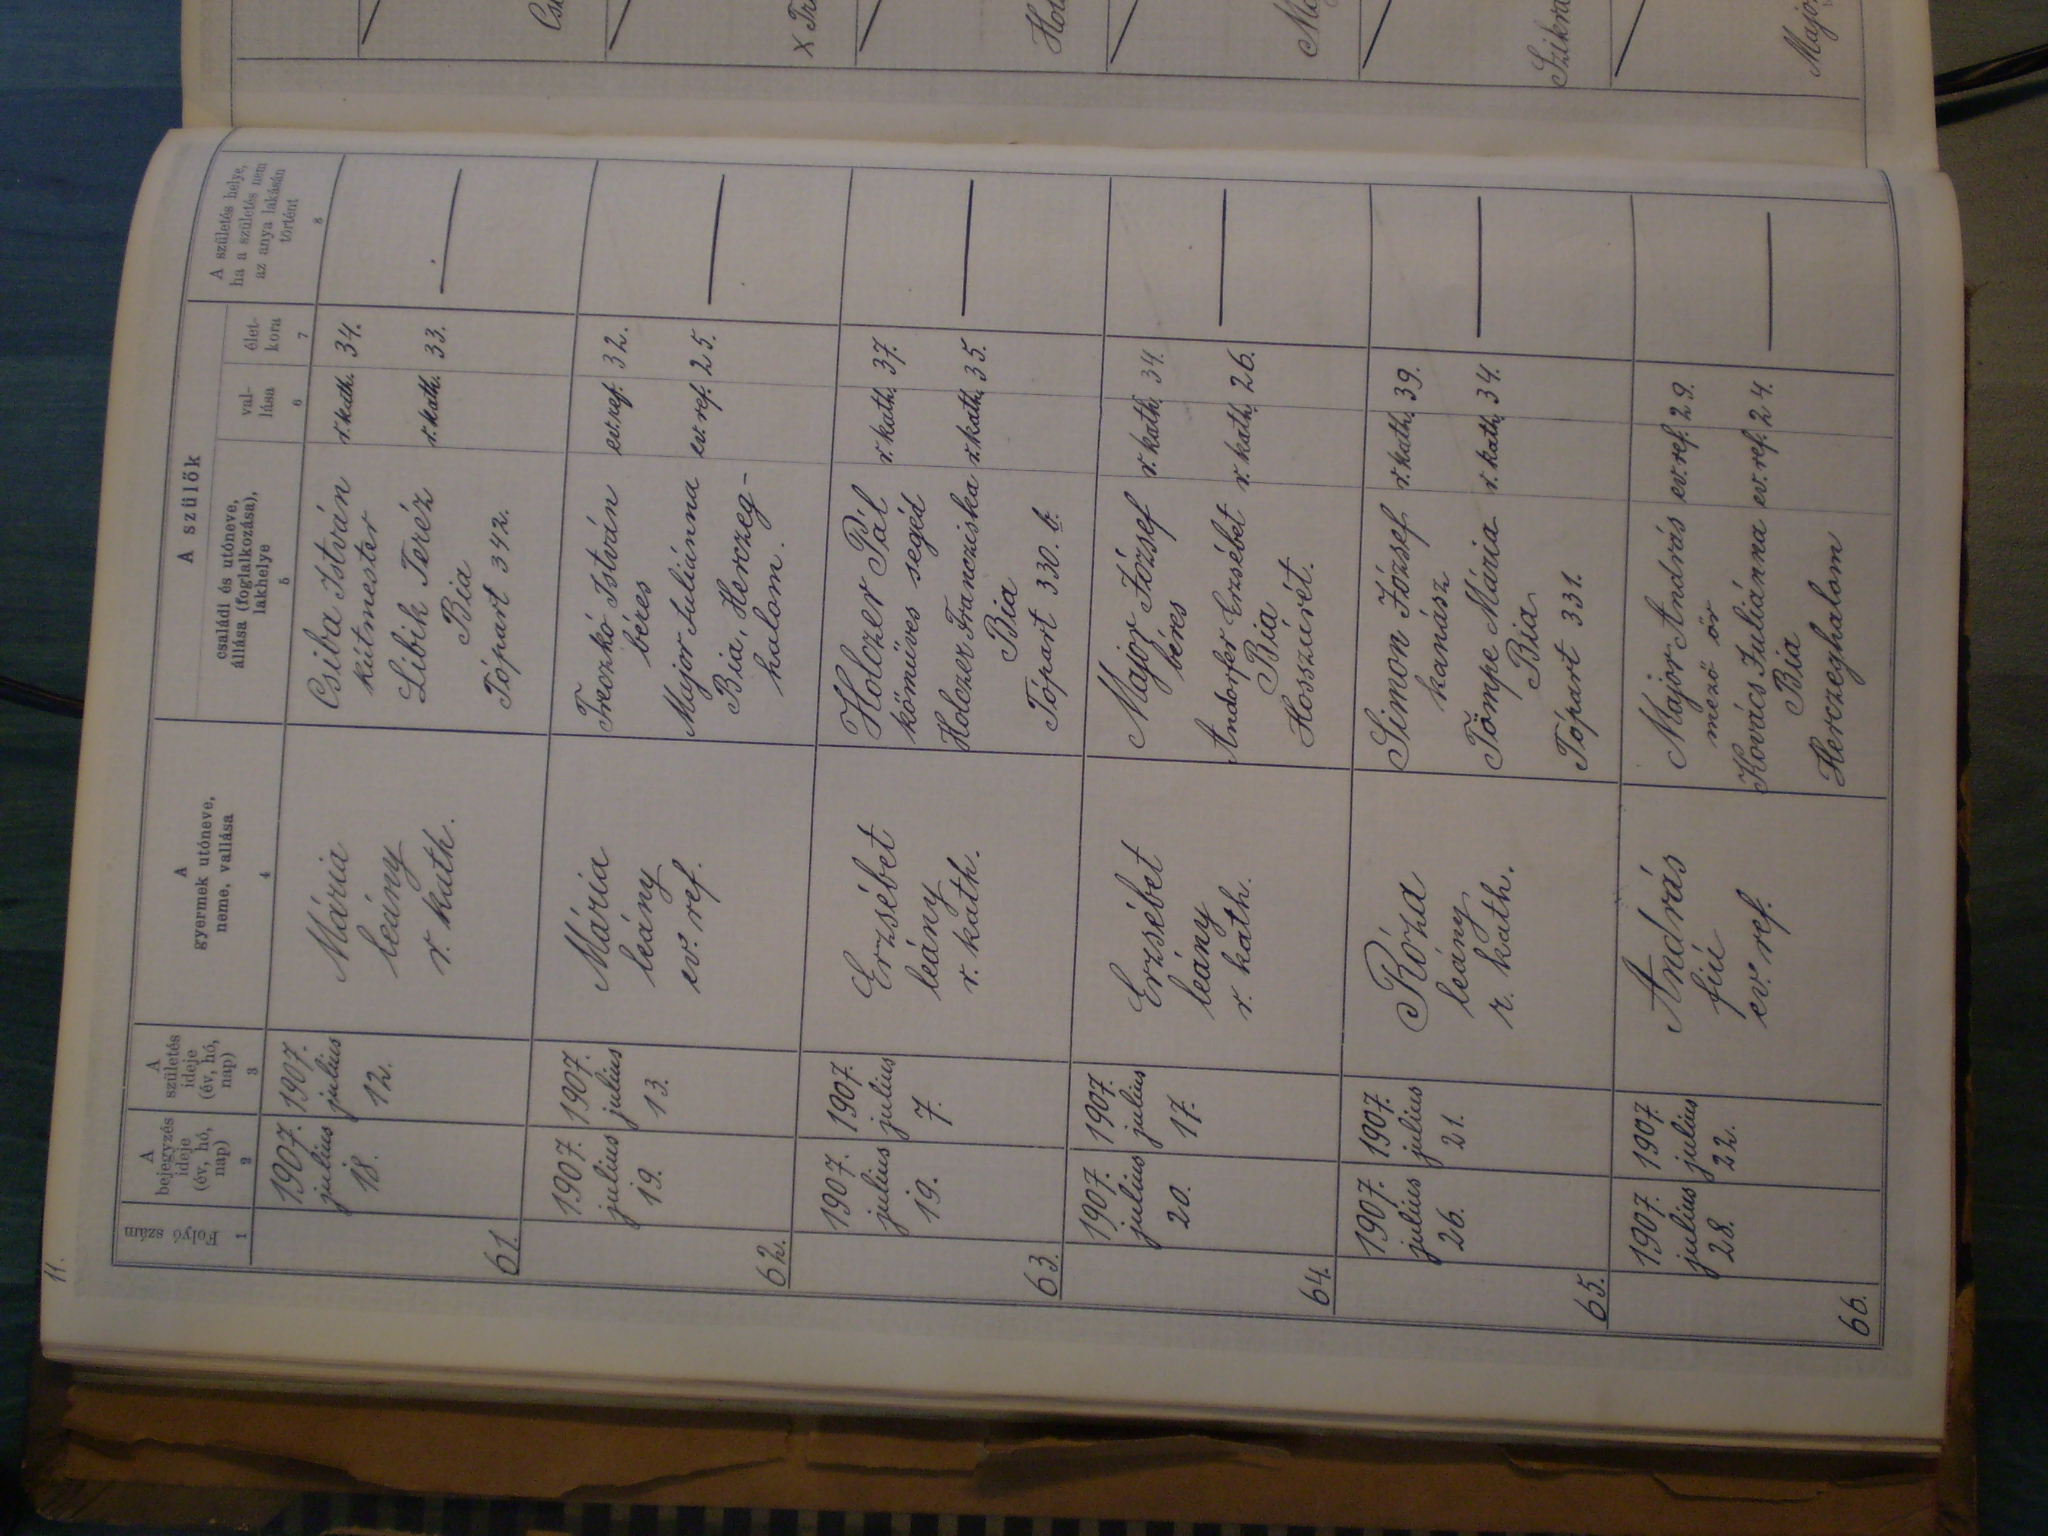 11.
Folyó szám
A
bejegyzés
ideje
(év, hó,
nap)
A
születés
ideje
(év, hó,
nap)
A
gyermek utóneve,
neme, vallása
A szülők
családi és utóneve,
állása (foglalkozása),
lakhelye
val-
lása
élet-
kora
A születés helye,
ha a születés nem
az anya lakásán
történt
1
2
3
4
5
6
7
8
61.
1907.
julius
18.
1907.
julius
12.
Mária
leány
r. kath.
Csiba István
kútmester
Libik Teréz
Bia
Tópart 342.
r. kath. 34.
r. kath. 33.
62.
1907.
julius
19.
1907.
julius
13.
Mária
leány
ev. ref.
Treczkó István
béres
Major Juliánna
Bia, Herczeg-
halom.
ev. ref. 32.
ev. ref. 25.
63.
1907.
julius
19.
1907.
julius
7.
Erzsébet
leány
r. kath.
Holczer Pál
kőműves segéd
Holczer Francziska
Bia
Tópart 330. b.
r. kath. 37.
r. kath. 35.
64.
1907.
julius
20.
1907.
julius
17.
Erzsébet
leány
r. kath.
Major József
béres
Andorfer Erzsébet
Bia
Hosszúrét.
r. kath. 34.
r. kath. 26.
65.
1907.
julius
26.
1907.
julius
21.
Róza
leány
r. kath.
Simon József
kanász
Tömpe Mária
Bia
Tópart 331.
r. kath. 39.
r. kath. 34.
66.
1907.
julius
28.
1907.
julius
22.
András
fiú
ev. ref.
Major András
mező őr
Kovács Juliánna
Bia
Herczeghalom
ev. ref. 29.
ev. ref. 24.